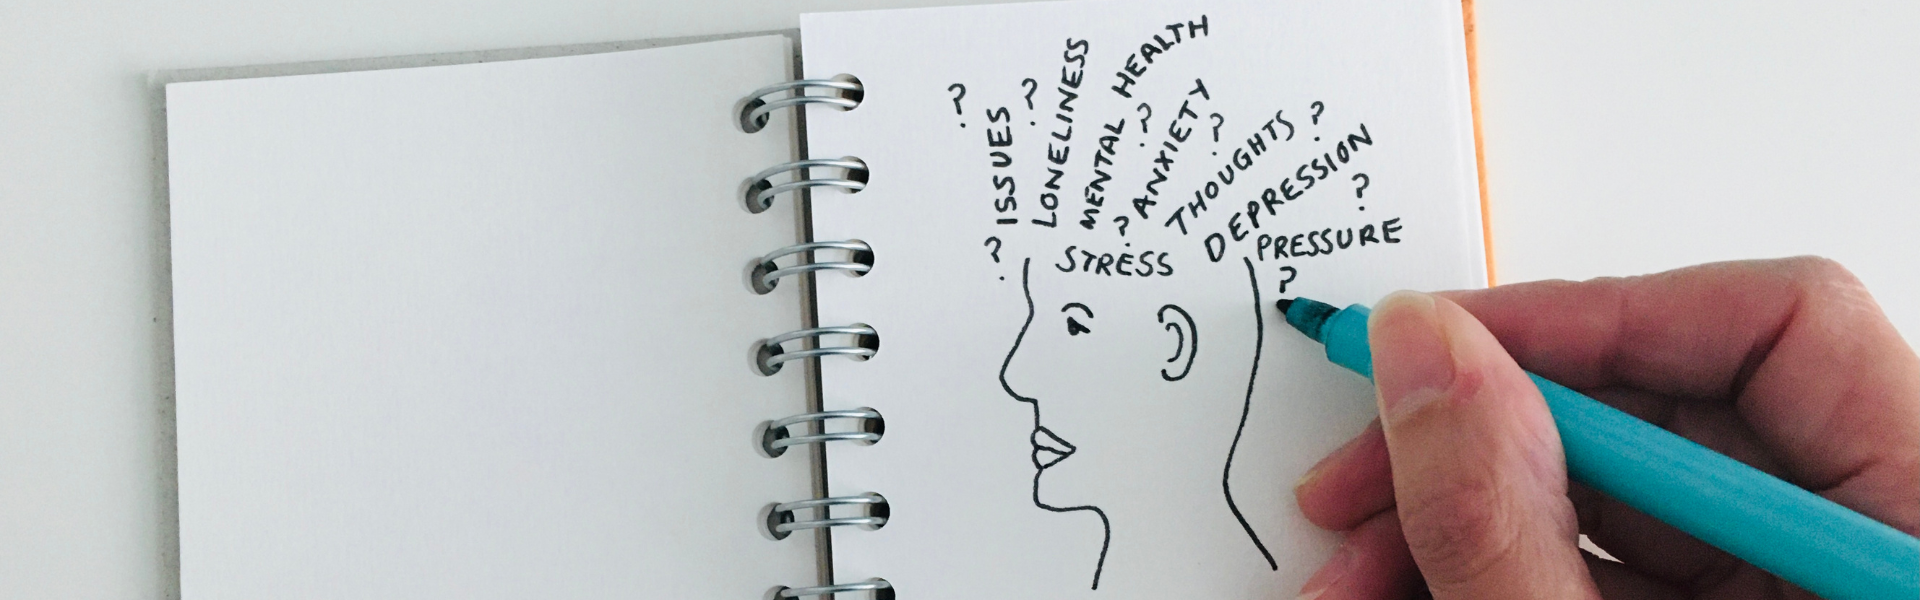 ? ISSUES ?
LONELINESS
MENTAL HEALTH
?
? ANXIETY
?
THOUGHTS ?
DEPRESSION
?
PRESSURE
?
? STRESS